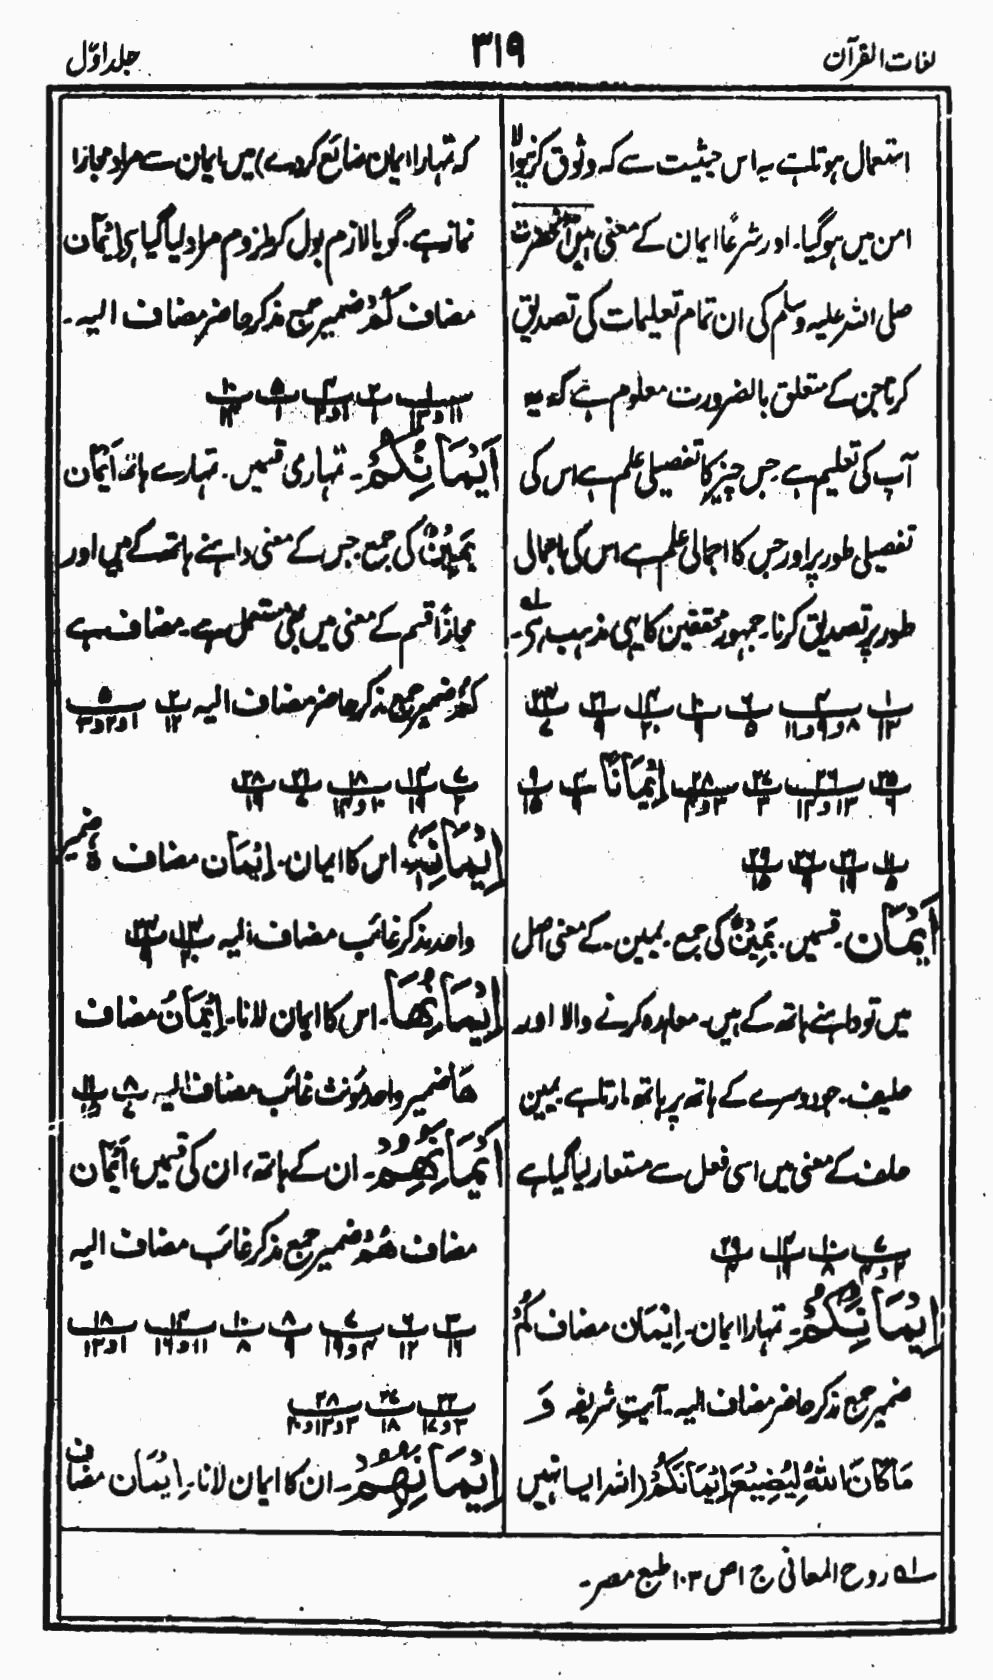 لغات القرآن
۳۱۹
جلد اوّل
استعمال ہوتا ہے یہ اس حیثیت سے کہ وثوق کرنیوالا
امن میں ہوگیا۔ اور شرعًا ایمان کے معنی ہیں آنحضرت
صلی اللہ علیہ وسلم کی ان تمام تعلیمات کی تصدیق
کرنا جن کے متعلق بالضرورت معلوم ہے کہ یہ
آپ کی تعلیم ہے۔ جس چیز کا تفصیلی علم ہے اس کی
تفصیلی طور پر اور جس کا اجمالی علم ہے اس کی اجمالی
طور پر تصدیق کرنا۔ جمہور محققین کا یہی مذہب ہے۔
اِیْمَانًا
اَیْمَان۔ قسمیں۔ یَمِیْنٌ کی جمع۔ یمین۔ کے معنی اصل
میں تو داہنے ہاتھ کے ہیں۔ معاہدہ کرنے والا اور
حلیف۔ جو دوسرے کے ہاتھ پر ہاتھ مارتا ہے یمین
حلف کے معنی میں اسی فعل سے مستعار لیا گیا ہے
اِیْمَانِکُمْ۔ تمہارا ایمان۔ اِیْمَان مضاف کُمْ
ضمیر جمع مذکر حاضر مضاف الیہ۔ آیتِ شریفہ وَ
مَا کَانَ اللّٰہُ لِیُضِیْعَ اِیْمَانَکُمْ (اللہ ایسا نہیں
کہ تمہارا ایمان ضائع کر دے) میں ایمان سے مراد مجازا
نماز ہے۔ گویا لازم بول کر ملزوم مراد لیا گیا ہے اِیْمَان
مضاف کُمْ ضمیر جمع مذکر حاضر مضاف الیہ۔
اَیْمَانِکُمْ۔ تمہاری قسمیں۔ تمہارے ہاتھ اَیْمَان
یَمِیْنٌ کی جمع۔ جس کے معنی داہنے ہاتھ کے ہیں اور
مجازًا قسم کے معنی میں بھی مستعمل ہے۔ مضاف ہے
کُمْ ضمیر جمع مذکر حاضر مضاف الیہ
اِیْمَانِہٖ اس کا ایمان۔ اِیْمَان مضاف ہٗ ضمیر
واحد مذکر غائب مضاف الیہ
اِیْمَانُہَا۔ اس کا ایمان لانا۔ اِیْمَانُ مضاف
ھَا ضمیر واحد مؤنث غائب مضاف الیہ
اَیْمَانُہُمْ۔ ان کے ہاتھ، ان کی قسمیں، اَیْمَان
مضاف ھُمْ ضمیر جمع مذکر غائب مضاف الیہ
اِیْمَانُہُمْ۔ ان کا ایمان لانا۔ اِیْمَان مضاف
لہ روح المعانی ج ۱ ص ۱۰۳ طبع مصر۔